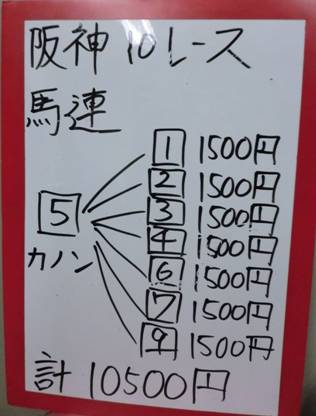 阪神10レース
馬連
1 1500円
2 1500円
3 1500円
5
4 1500円
カノン
6 1500円
7 1500円
9 1500円
計 10500円